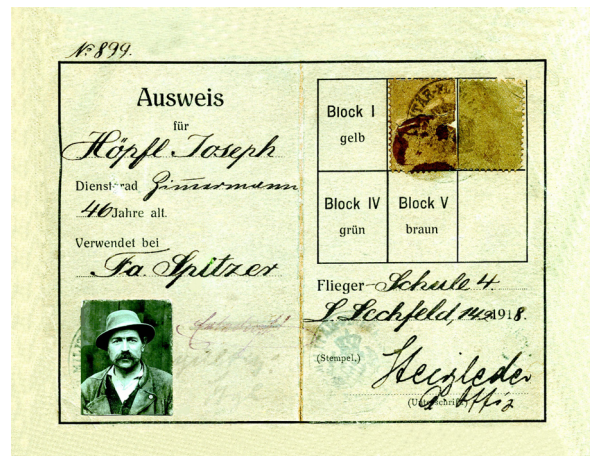 No. 899.
Ausweis
für
Höpfl Joseph
Dienstgrad Zimmermann
46 Jahre alt.
Verwendet bei
Fa. Spitzer
Block I
gelb
Block IV
grün
Block V
braun
Flieger-Schule 4.
Lechfeld, 1918.
(Stempel.)
(Unterschrift)